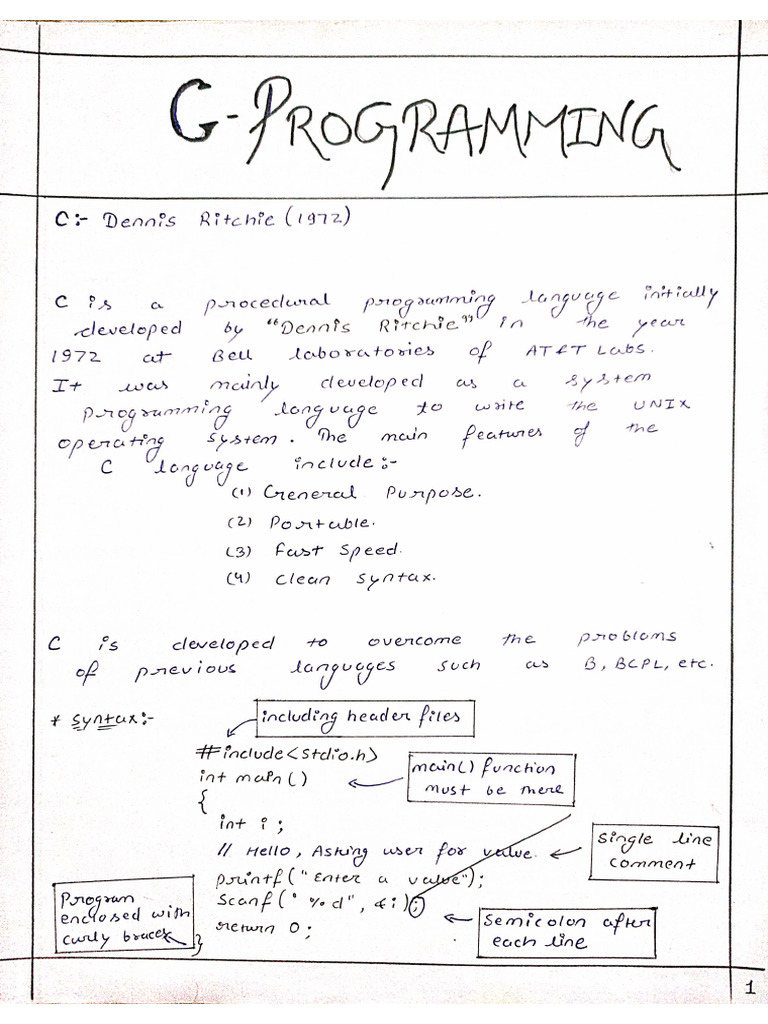 C-PROGRAMMING
C:- Dennis Ritchie (1972)
C is a procedural programming language initially
developed by "Dennis Ritchie" in the year
1972 at Bell laboratories of AT&T Labs.
It was mainly developed as a system
programming language to write the UNIX
operating system. The main features of the
C language include:-
(1) General Purpose.
(2) Portable.
(3) Fast Speed.
(4) Clean syntax.
C is developed to overcome the problems
of previous languages such as B, BCPL, etc.
* Syntax:-
including header files
#include<stdio.h>
int main()
main() function
must be there
{
int i;
// Hello, Asking user for value.
Single line
comment
printf("Enter a value");
scanf("%d", &i);
Program
enclosed with
curly braces
return 0;
}
Semicolon after
each line
1